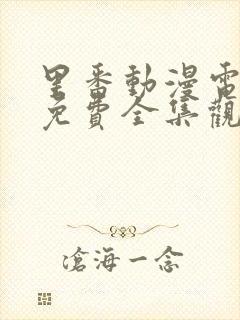 里番動漫電
免費全集觀
滄海一念